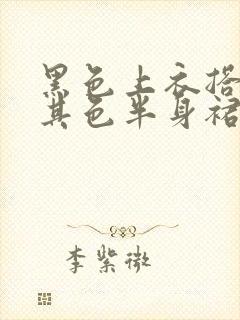 黑色上衣搭
其色半身裙
李紫微